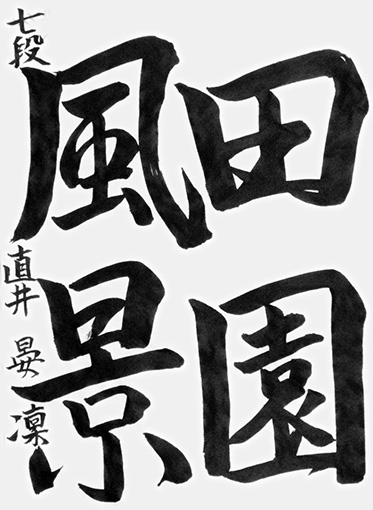 田園
風景
七段
直井 晏凜